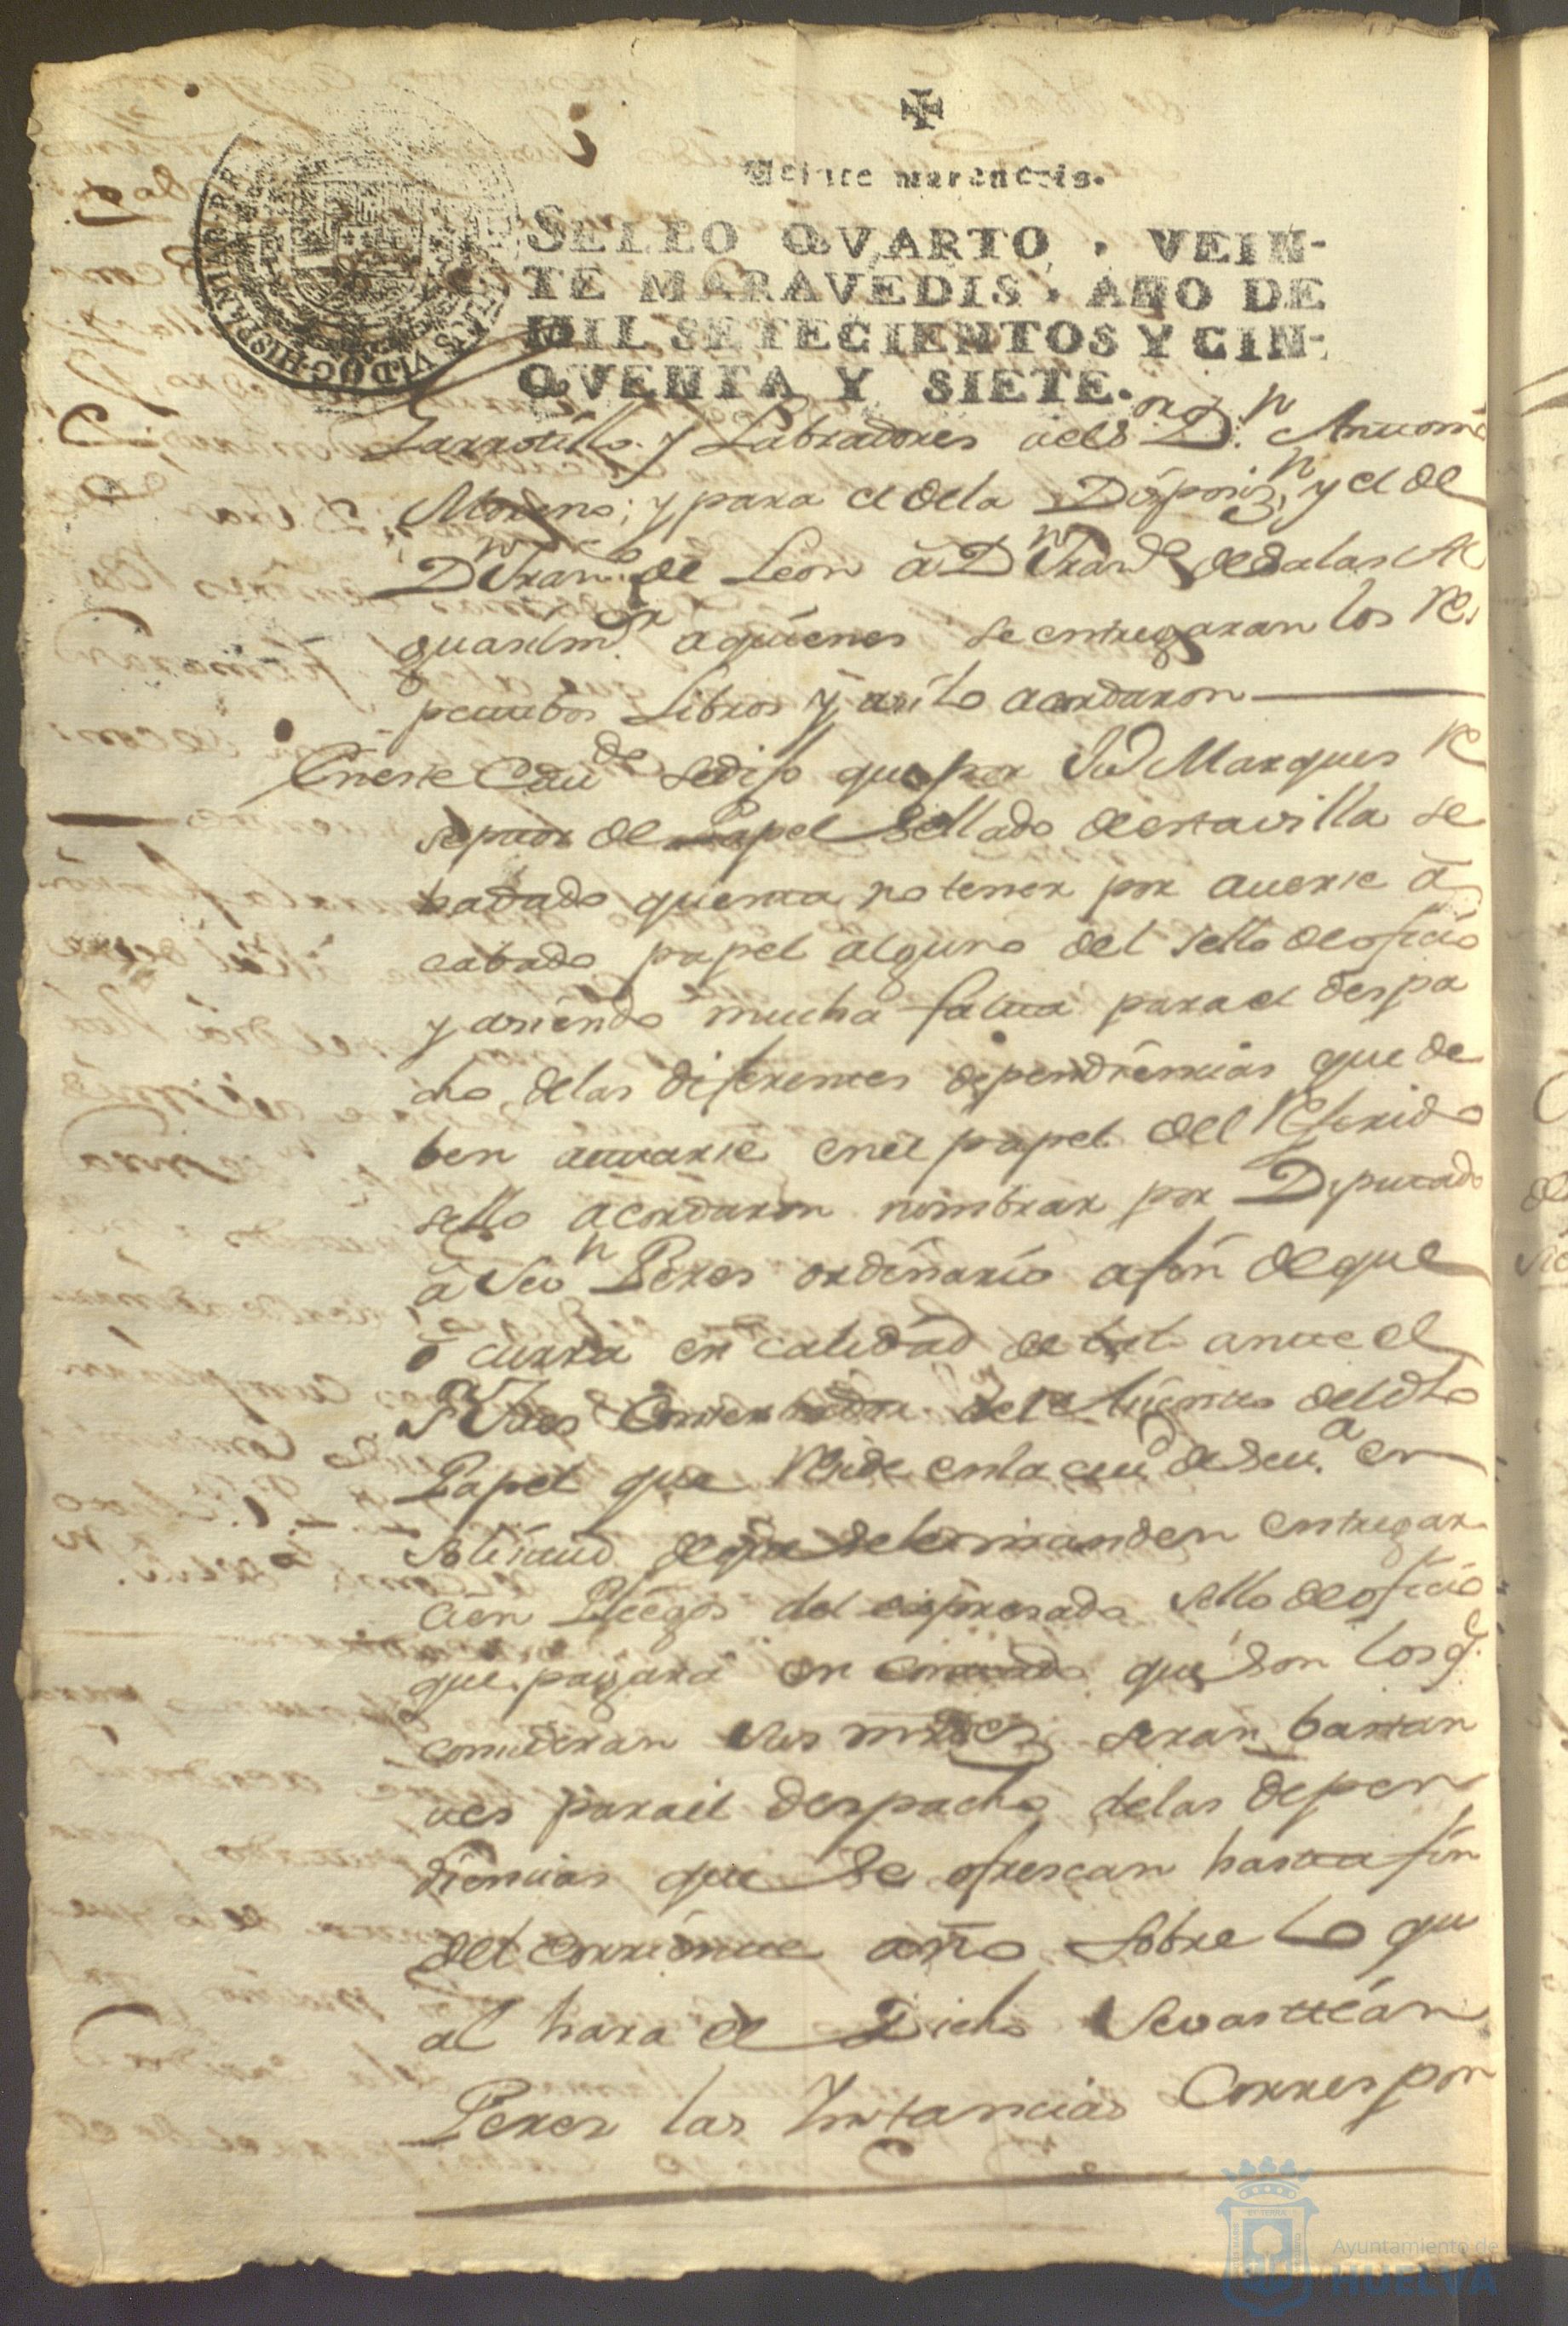 Veinte maravedis.
SELLO QVARTO, VEIN-
TE MARAVEDIS, AÑO DE
MIL SETECIENTOS Y CIN-
QVENTA Y SIETE.
HISPANIAR
VI D G
Zarrotillo y Labradores al Sor. Dn. Antonio
Moreno; y para el de la Disposizn. y el de
Dn Franco. de Leon â Dn Franco. de Salas Al
guasilmr. a quienes se entregaran los Res
pectibos Libros y asi lo acordaron
En este Cavdo se dijo que por Jud Marques Re
septor de Papel Sellado de esta villa se
ha dado quenta no tener por averse â
cabado papel alguno del sello de oficio
y asiendo mucha falta para el despa
cho de las diferentes dependiencias que de
ben actuarse en el papel del Referido
sello acordaron nombrar por Diputado
â Sevn Peres ordinario a fin de que
ô curra en calidad de tal ante el
Sr Jues Conservador de Rentas del dho
Papel que Reside en la ciud de Seva. en
solicitud de que se le manden entregar
cien Pliegos del expresado sello de oficio
que pagará en contado que son los q.
consideran sus mrdes seran bastan
tes para el despacho de las depen
diencias que se ofrescan hasta fin
del corriente año sobre lo qu
al hara el Dicho Sevastian
Peres las Instancias Correspon
Ayuntamiento de
HUELVA